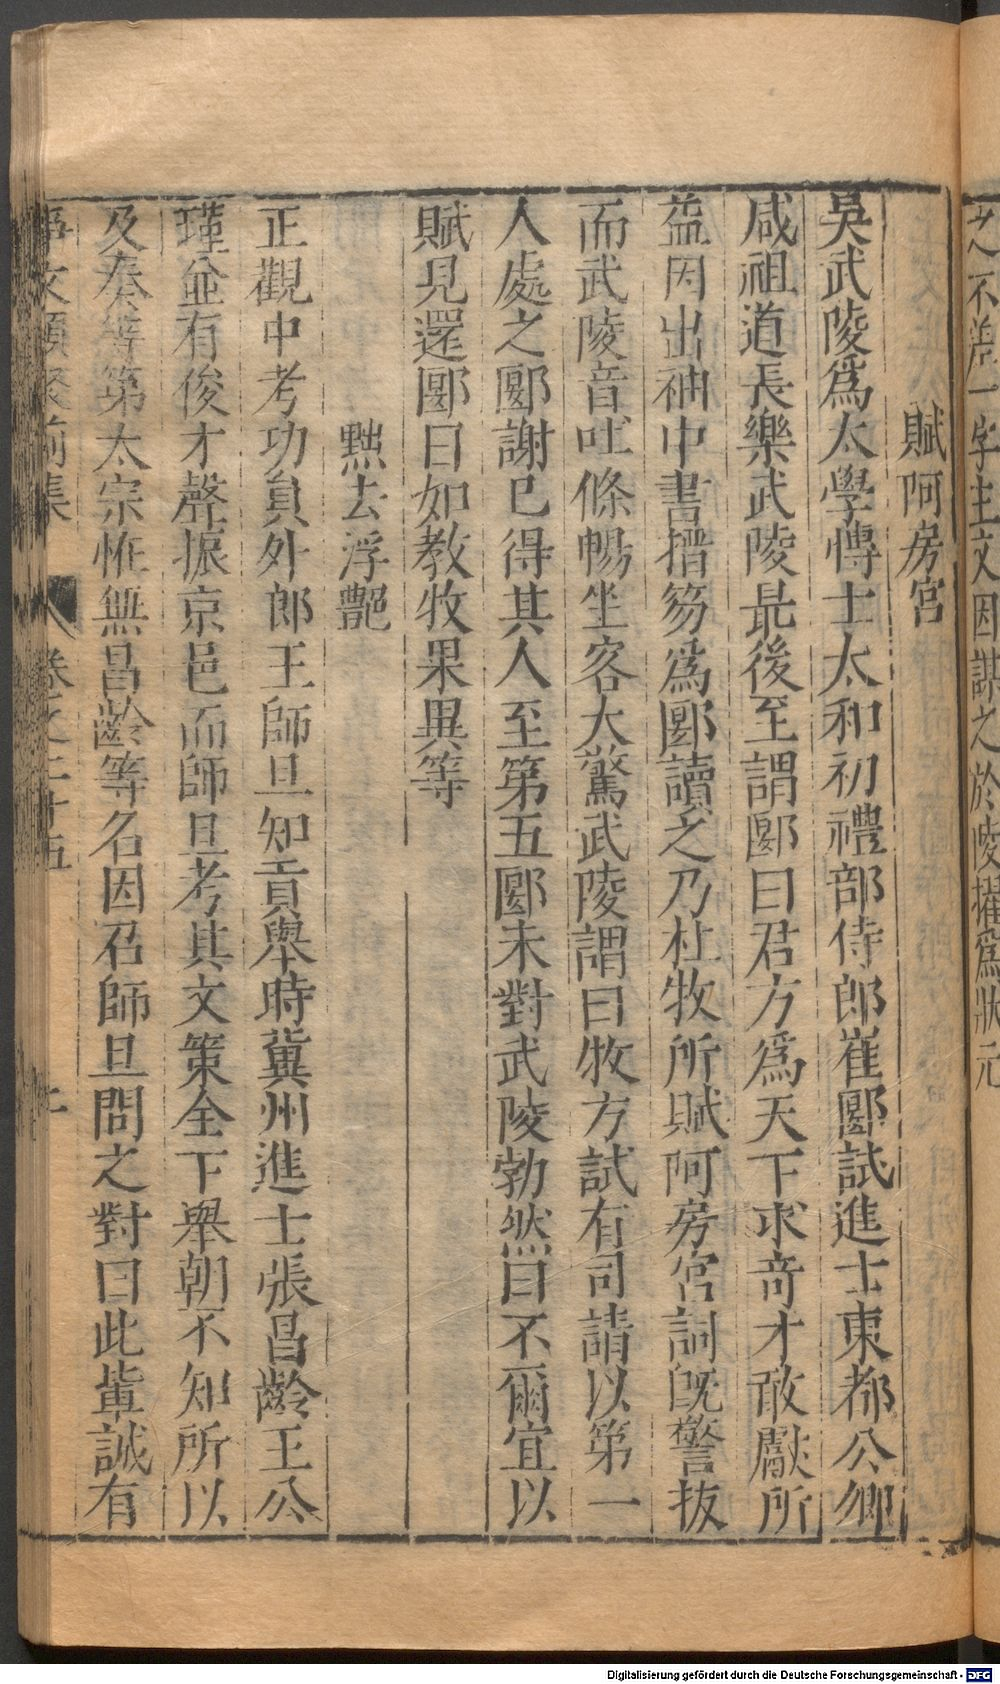 之不差一字主文因謀之於陵擢爲狀元
賦阿房宮
吳武陵爲太學博士太和初禮部侍郎崔郾試進士東都公卿
咸祖道長樂武陵最後至謂郾曰君方爲天下求奇才敢獻所
益因出袖中書搢笏爲郾讀之乃杜牧所賦阿房宮詞旣警拔
而武陵音吐條暢坐客大驚武陵謂曰牧方試有司請以第一
人處之郾謝已得其人至第五郾未對武陵勃然曰不爾宜以
賦見還郾曰如教牧果異等
黜去浮豔
正觀中考功員外郎王師旦知貢舉時冀州進士張昌齡王公
瑾並有俊才聲振京邑而師旦考其文策全下舉朝不知所以
及奏等第太宗恠無昌齡等名因召師旦問之對曰此輩誠有
事文類聚前集 卷之二十五 七
Digitalisierung gefördert durch die Deutsche Forschungsgemeinschaft - DFG